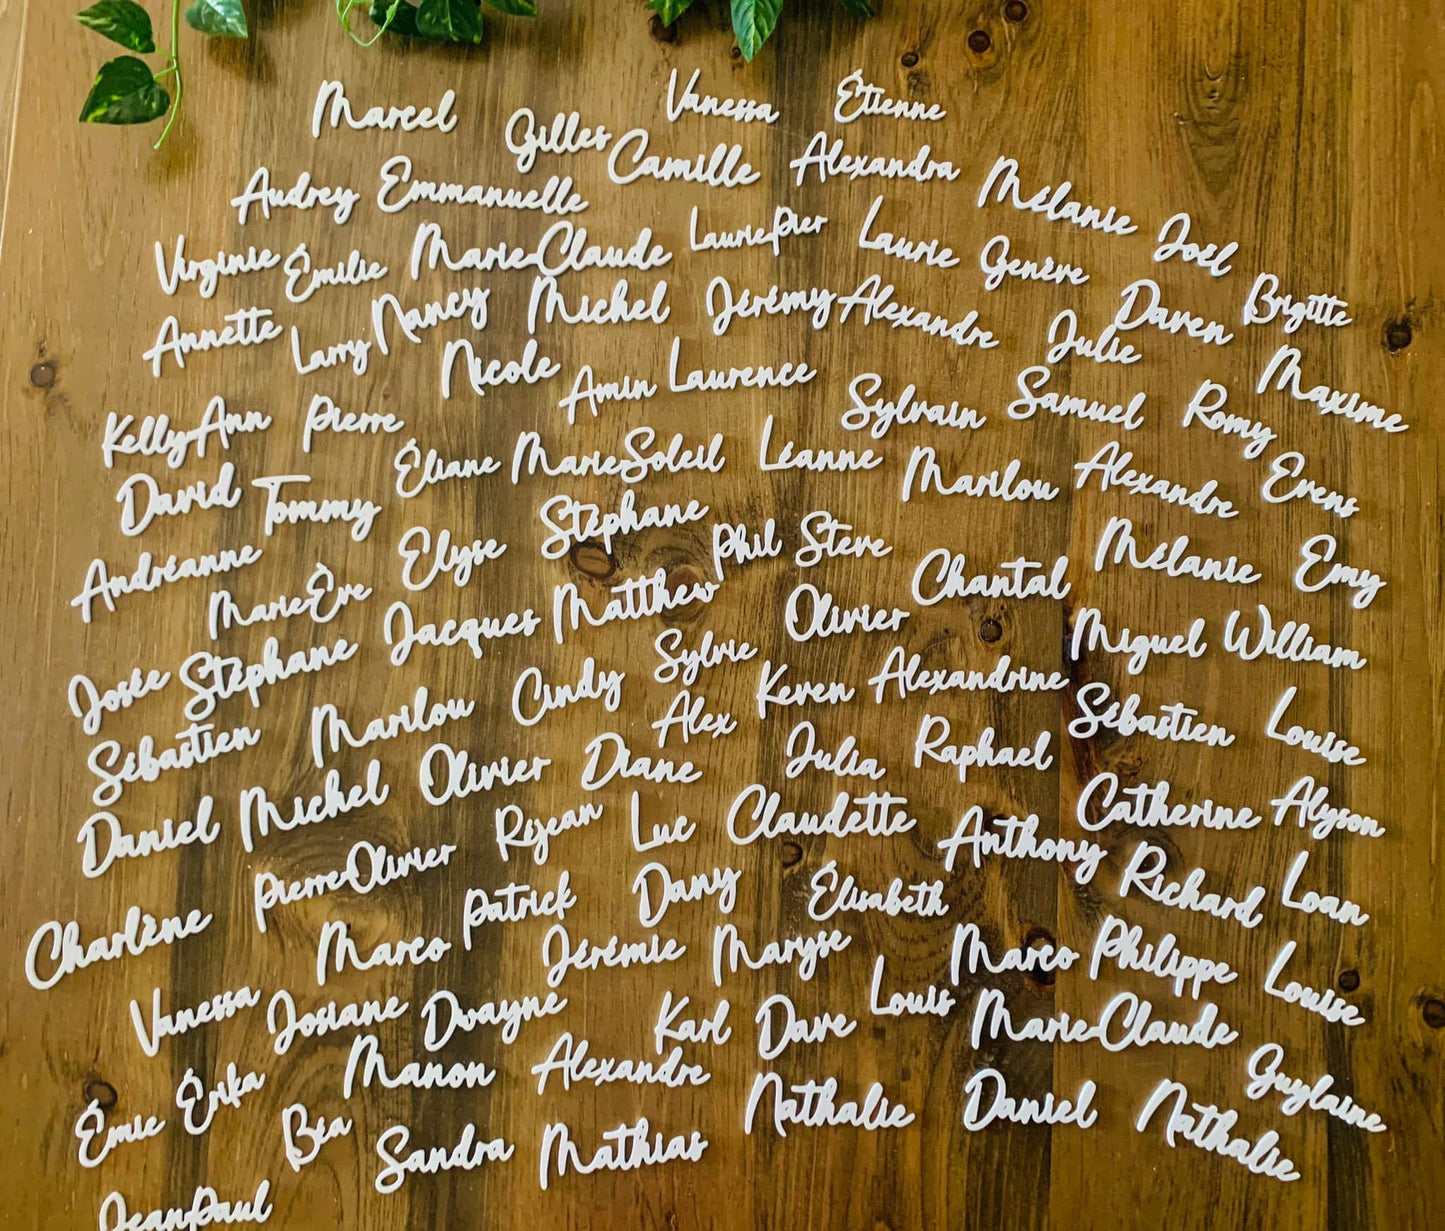 Marcel Gilles Vanessa Étienne
Audrey Emmanuelle Camille Alexandra Mélanie Joël
Virginie Émilie Marie-Claude Laurie-Pier Laurie Genève Daven Brigitte
Annette Larry Nancy Michel Jérémy Alexandre Julie Maxime
Nicole Amin Laurence Sylvain Samuel Romy
Kelly-Ann Pierre Éliane Marie-Soleil Léanne Marilou Alexandre Evens
David Tommy Stéphane Phil Steve Chantal Mélanie Emy
Andréanne Marie-Ève Elyse Jacques Matthew Olivier Miguel William
Josée Stéphane Marilou Cindy Sylvie Keven Alexandrine Sébastien Louise
Sébastien Michel Olivier Diane Alex Julia Raphael Catherine Alyson
Daniel Pierre-Olivier Réjean Luc Claudette Anthony Richard Loan
Charlène Marco Patrick Dany Élisabeth Marco Philippe Louise
Vanessa Josiane Dwayne Jérémie Maryse Louis Marie-Claude Guylaine
Émie Érika Manon Alexandre Karl Dave Nathalie Daniel Nathalie
Béa Sandra Mathias
Jean-Paul